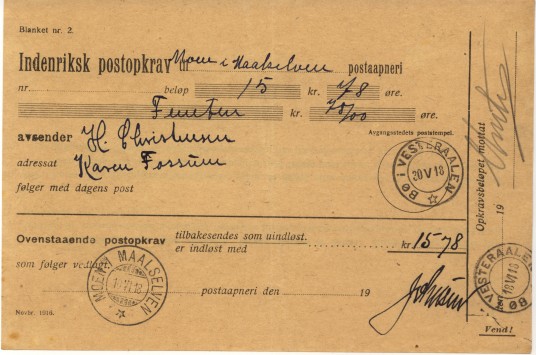 Blanket nr. 2.
Indenriksk postopkrav til Moen i Maalselven postaapneri
nr. beløp 15 kr. 78 øre.
Femten kr. 78/00 øre.
avsender H Christensen
Avgangsstedets poststempel.
adressat Karen Fossum
følger med dagens post
BØ I VESTERAALEN
30 V 18
Ovenstaaende postopkrav tilbakesendes som uindløst.
er indløst med kr 15 78
som følger vedlagt.
MOEN I MAALSELVEN
postaapneri den 19
Johnsen
Novbr. 1916.
Opkravsbeløpet mottat
19
BØ I VESTERAALEN
18 VI 18
Vend!